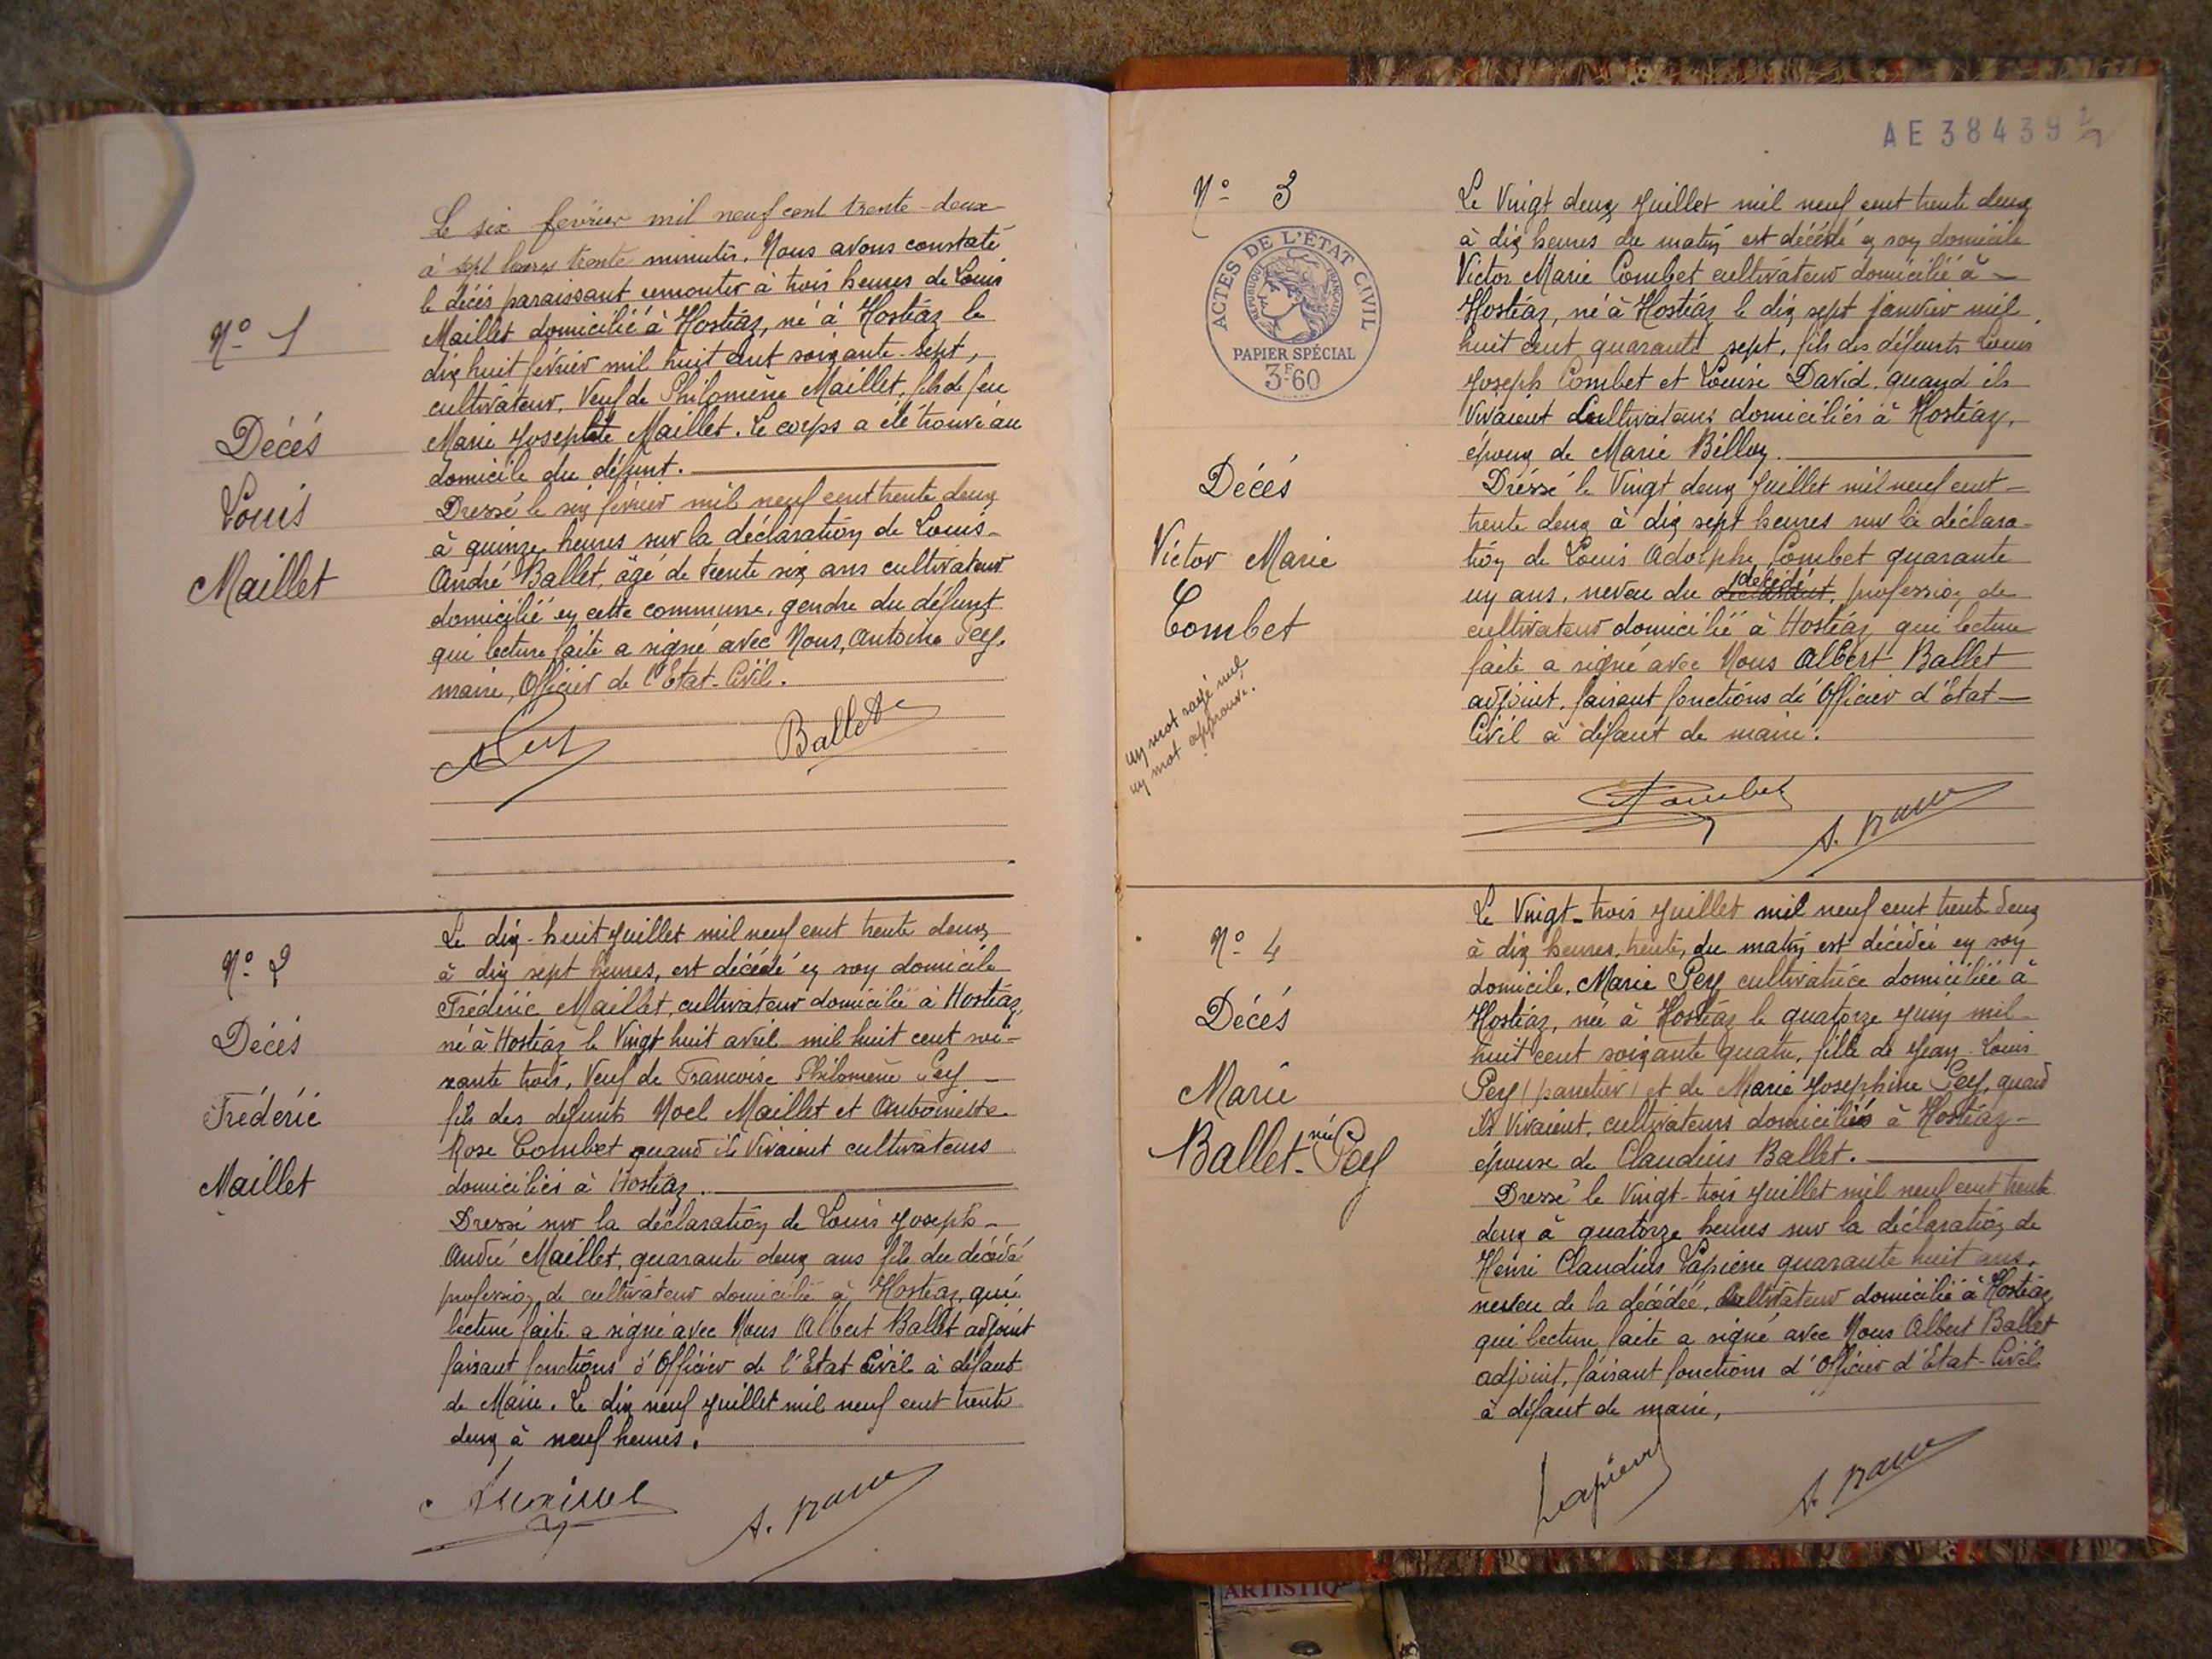 Nº 1
Décés
Louis
Maillet
Le six février mil neuf cent trente-deux
à sept heures trente minutes. Nous avons constaté
le décés paraissant remonter à trois heures de Louis
Maillet domicilié à Hostiaz, né à Hostiaz le
dix huit février mil huit cent soixante-sept,
cultivateur, Veuf de Philomène Maillet, fils de feu
Marie Josephte Maillet. Le corps a été trouvé au
domicile du défunt.
Dressé le six février mil neuf cent trente deux
à quinze heures sur la déclaration de Louis-
André Ballet, âgé de trente six ans cultivateur
domicilié en cette commune, gendre du défunt
qui lecture faite a signé avec Nous, Antoine Pey,
maire, Officier de l'Etat-Civil.
Ballet
Nº 2
Décés
Fréderic
Maillet
Le dix-huit juillet mil neuf cent trente deux
à dix sept heures, est décédé en son domicile
Fréderic Maillet, cultivateur domicilié à Hostiaz,
né à Hostiaz le Vingt huit avril mil huit cent soi-
xante trois, Veuf de Francoise Philomène Pey
fils des defunts Noel Maillet et Antoinette
Rose Combet quand ils Vivaient cultivateurs
domiciliés à Hostiaz.
Dressé sur la déclaration de Louis Joseph-
André Maillet, quarante deux ans fils du décédé
profession de cultivateur domicilié à Hostiaz, qui
lecture faite a signé avec Nous Albert Ballet adjoint
faisant fonctions d'Officier de l'Etat Civil à défaut
de Maire. Le dix neuf juillet mil neuf cent trente
deux à neuf heures.
AE 38439
Nº 3
ACTES DE L'ÉTAT CIVIL
RÉPUBLIQUE FRANÇAISE
PAPIER SPÉCIAL
3F60
Décés
Victor Marie
Combet
un mot rayé nul
un mot approuvé.
Le Vingt deux Juillet mil neuf cent trente deux
à dix heures du matin est décédé en son domicile
Victor Marie Combet cultivateur domicilié à
Hostiaz, né à Hostiaz le dix sept janvier mil
huit cent quarante sept, fils des défunts Louis
Joseph Combet et Louise David, quand ils
Vivaient Cultivateurs domiciliés à Hostiaz,
époux de Marie Billoz.
Dréssé le Vingt deux Juillet mil neuf cent
trente deux à dix sept heures sur la déclara-
tion de Louis Adolphe Combet quarante
un ans, neveu du décédé, profession de
cultivateur domicilié à Hostiaz qui lecture
faite a signé avec Nous Albert Ballet
adjoint, faisant fonctions de Officier d'Etat
Civil à défaut de maire.
Combet
Nº 4
Décés
Marie
Ballet née Pey
Le Vingt-trois Juillet mil neuf cent trente deux
à dix heures, trente, du matin est décédée en son
domicile, Marie Pey cultivatrice domiciliée à
Hostiaz, née à Hostiaz le quatorze Juin mil
huit cent soixante quatre, fille de Jean-Louis
Pey (panetier) et de Marie Josephine Pey, quand
ils Vivaient, cultivateurs domiciliés à Hostiaz
épouse de Claudius Ballet.
Dressé le Vingt-trois Juillet mil neuf cent trente
deux à quatorze heures sur la déclaration de
Henri Claudius Lapierre quarante huit ans,
neveu de la décédée, Cultivateur domicilié à Hostiaz
qui lecture faite a signé avec Nous Albert Ballet
adjoint, faisant fonctions d'Officier d'Etat-Civil
à défaut de maire,
Lapierre
ARTISTIQ